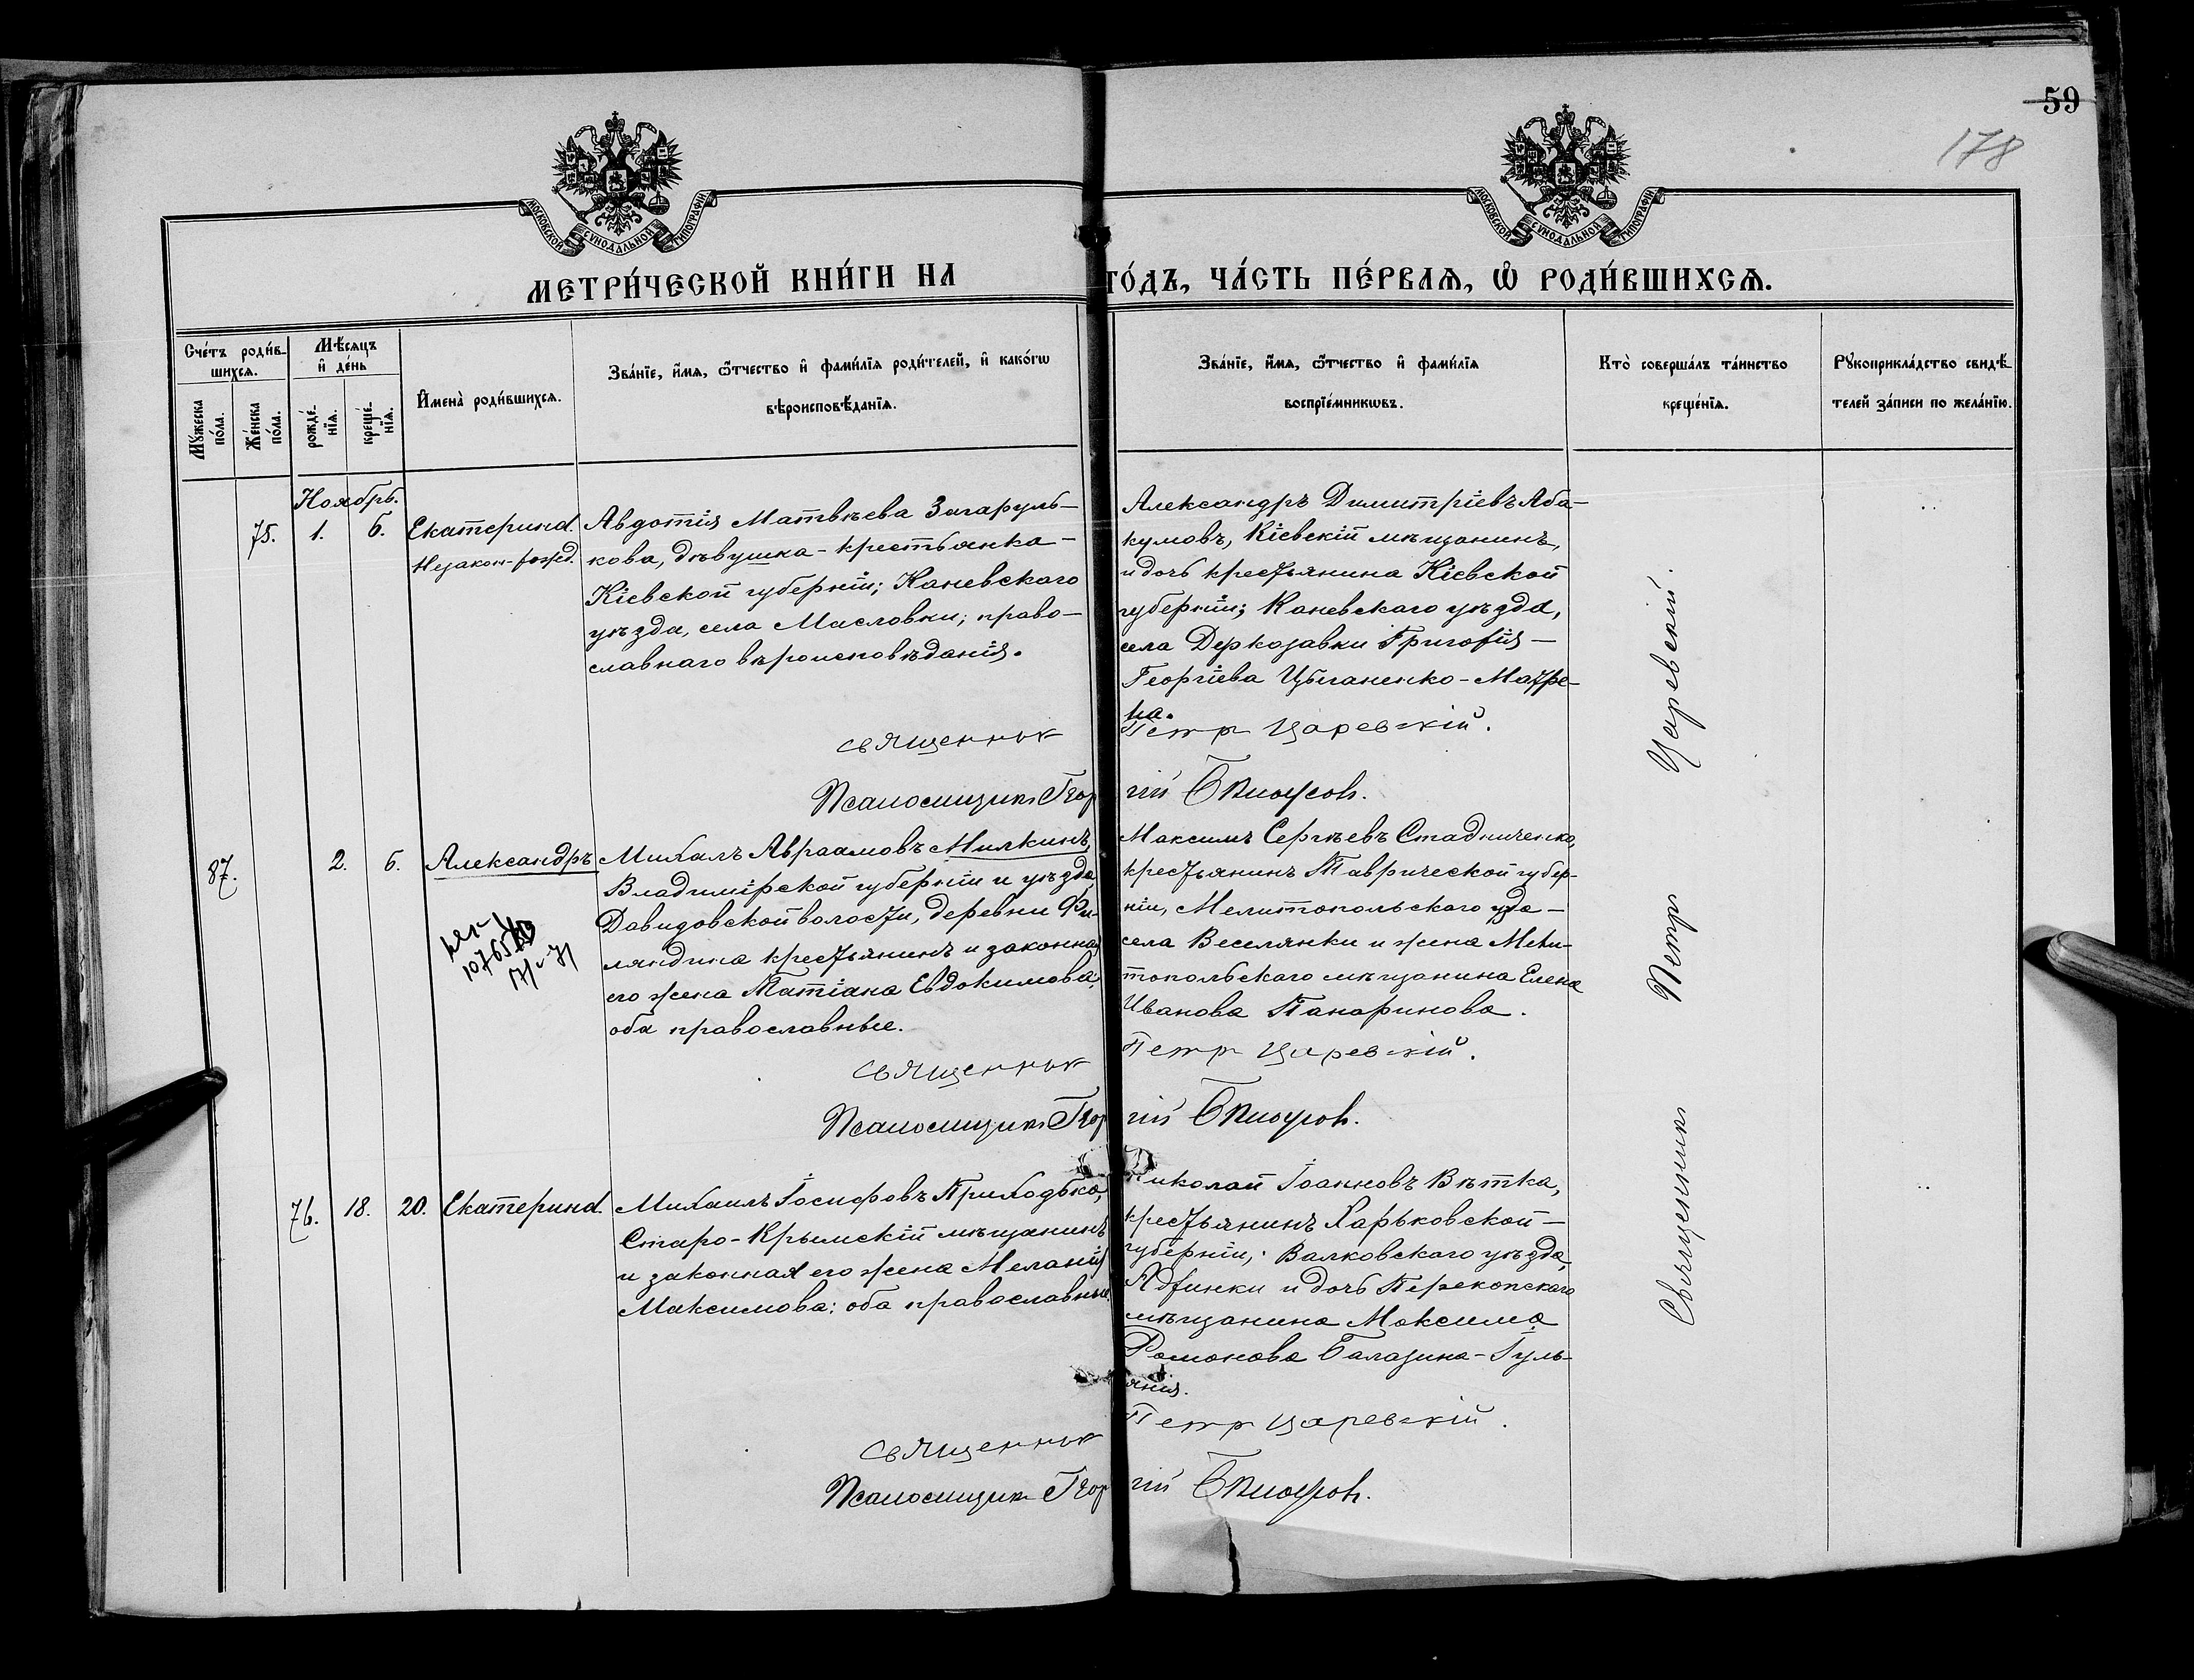 59
178
МОСКОВСКОЙ СѴНОДАЛЬНОЙ ТИПОГРАФІИ
МОСКОВСКОЙ СѴНОДАЛЬНОЙ ТИПОГРАФІИ
МЕТРИ́ЧЕСКОЙ КНИ́ГИ НА
ГО́ДЪ, ЧА́СТЬ ПЕ́РВАѦ, Ѡ҆ РОДИ́ВШИХСѦ.
Сче́тъ роди́в-
шихсѧ.
Мꙋ́жеска
по́ла.
Же́нска
по́ла.
Мѣ́сяцъ
и҆ де́нь
рожде́-
нїѧ.
креще́-
нїѧ.
И҆мена̀ роди́вшихсѧ.
Зва́нїе, и҆́мѧ, ѻ҆́тчество и҆ фамı́лїѧ роди́телей, и҆ како́гѡ
вѣроисповѣ́данїѧ.
Зва́нїе, и҆́мѧ, ѻ҆́тчество и҆ фамı́лїѧ
воспрїе́мникѡвъ.
Кто̀ соверша́лъ та́инство
креще́нїѧ.
Рꙋкоприкла́дство свидѣ́-
телей за́писи по жела́нїю.
Ноябрь.
75. 1. 6. Екатерина
Незакон-рожд.
Авдотія Матвѣева Загаруль-
кова, дѣвушка-крестьянка-
Кіевской губерніи; Каневскаго
уѣзда, села Масловки; право-
славнаго вѣроисповѣданія.
Александръ Димитріевъ Аба-
кумовъ, Кіевскій мѣщанинъ,
и дочь крестьянина Кіевской
губерніи; Каневскаго уѣзда,
села Деркозавки Григорія-
Георгіева Цыганенко-Матре-
на.
Священник Петр Царевскій.
Псаломщикъ Геор гій
87. 2. 6. Александръ
Михаилъ Авраамовъ Милкинъ,
Владимірской губерніи и уѣзда,
Давидовской волости, деревни Фи-
ляндина крестьянинъ и законная
его жена Татіана Евдокимова,
оба православные.
Максимъ Сергѣевъ Стадниченко,
крестьянинъ Таврической губер-
ніи, Мелитопольскаго уѣзда-
села Веселянки и жена Мели-
топольскаго мѣщанина Елена
Иванова Панаринова.
Священник Петр Царевскій.
Псаломщикъ Геор гій
76. 18. 20. Екатерина.
Михаилъ Іосифовъ Приходько,
Старо-Крымскій мѣщанинъ
и законная его жена Меланія
Максимова: оба православные.
Николай Іоанновъ Вѣтка,
крестьянинъ Харьковской-
губерніи, Валковскаго уѣзда,
и дочь Перекопскаго
мѣщанина Максима
Романова Балазина-Іуль-
янія.
Священник Петр Царевскій.
Псаломщикъ Геор гій
Священникъ Петръ Царевскій.